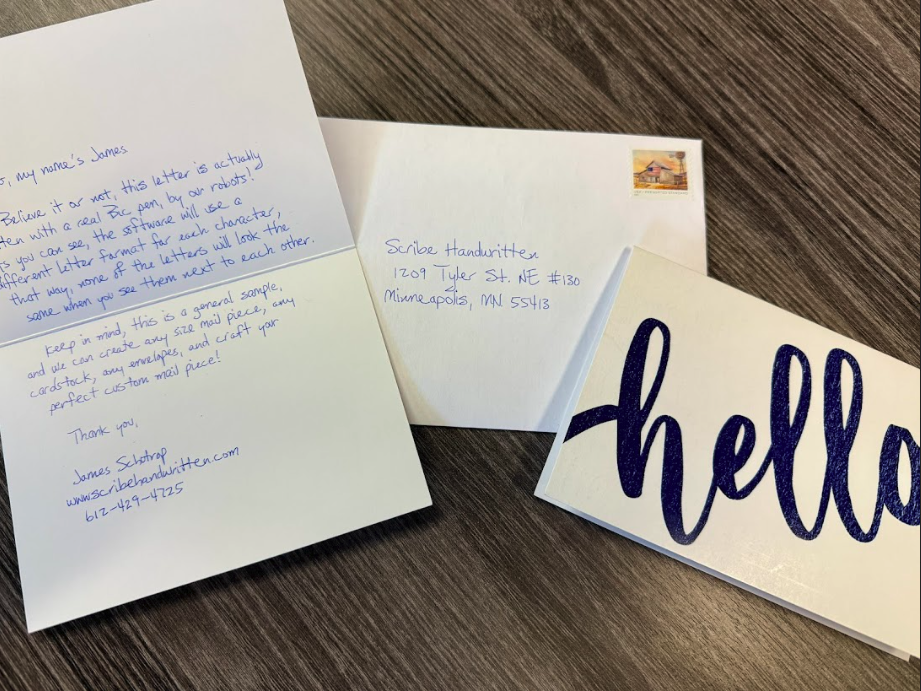 my name's James
Believe it or not, this letter is actually
with a real Bic pen, by our robots!
you can see, the software will use a
different letter format for each character,
that way, none of the letters will look the
same when you see them next to each other.
Keep in mind, this is a general sample,
and we can create any size mail piece, any
cardstock, any envelopes, and craft your
perfect custom mail piece!
Thank you,
James Schotrop
www.scribehandwritten.com
612-429-4225
Scribe Handwritten
1209 Tyler St. NE #130
Minneapolis, MN 55413
hello